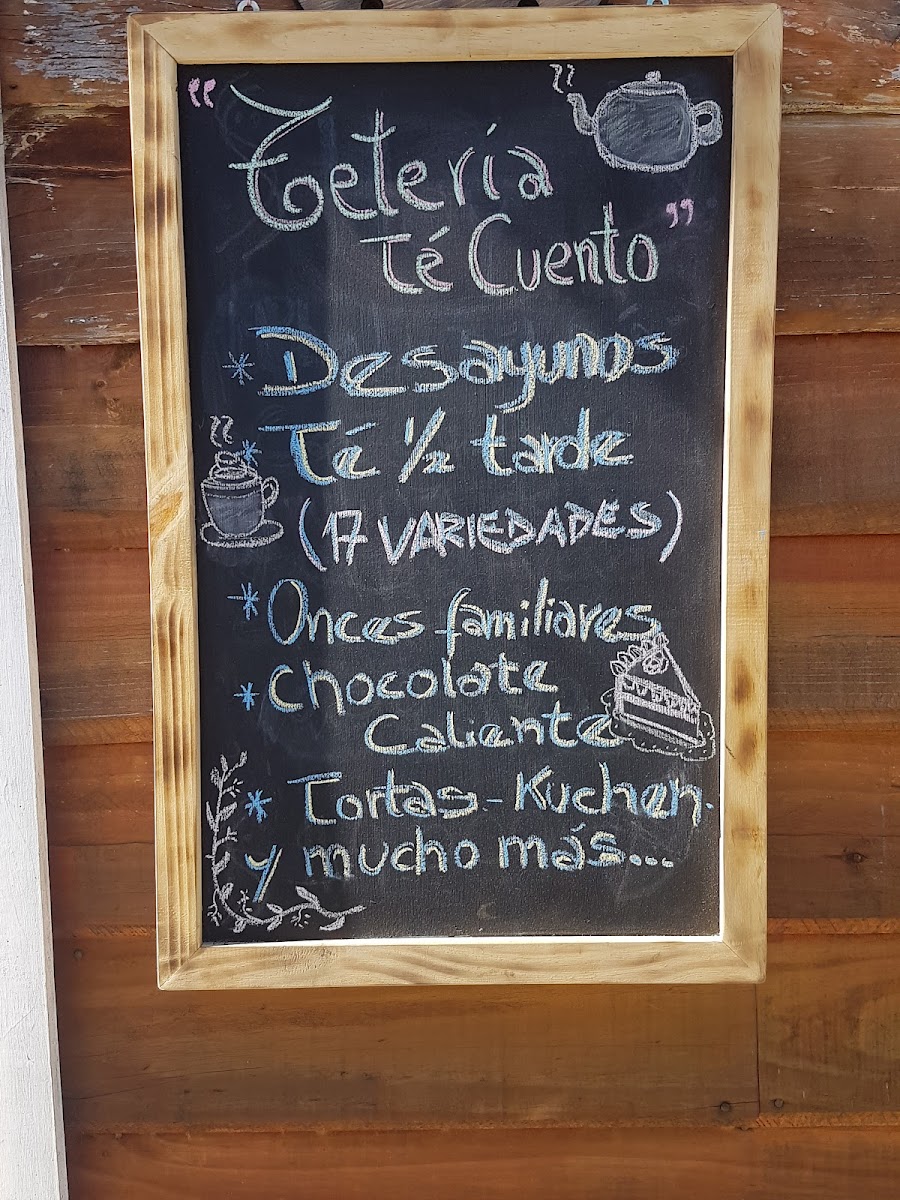 “Tetería
Té Cuento”
* Desayunos
* Té 1/2 tarde
(17 VARIEDADES)
* Onces familiares
* Chocolate
Caliente
* Tortas - Kuchen.
y mucho más...